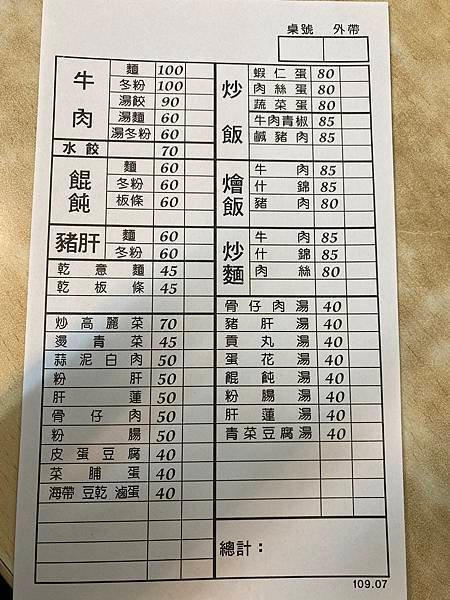 桌號 外帶
牛肉
麵 100
冬粉 100
湯餃 90
湯麵 60
湯冬粉 60
水餃 70
餛飩
麵 60
冬粉 60
板條 60
豬肝
麵 60
冬粉 60
乾意麵 45
乾板條 45
炒高麗菜 70
燙青菜 45
蒜泥白肉 50
粉肝 50
肝蓮 50
骨仔肉 50
粉腸 50
皮蛋豆腐 40
菜脯蛋 40
海帶 豆乾 滷蛋 40
炒飯
蝦仁蛋 80
肉絲蛋 80
蔬菜蛋 80
牛肉青椒 85
鹹豬肉 85
燴飯
牛肉 85
什錦 85
豬肉 80
炒麵
牛肉 85
什錦 85
肉絲 80
骨仔肉湯 40
豬肝湯 40
貢丸湯 40
蛋花湯 40
餛飩湯 40
粉腸湯 40
肝蓮湯 40
青菜豆腐湯 40
總計：
109.07